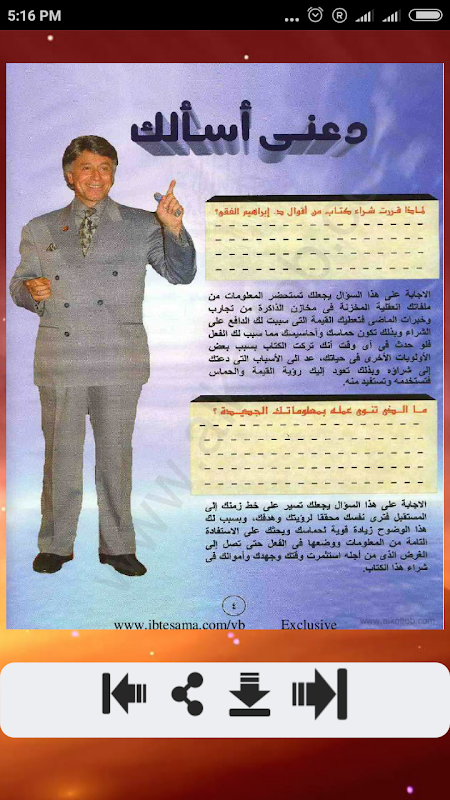 5:16 PM
دعنى أسألك
لماذا قررت شراء كتاب من أقوال د. إبراهيم الفقى؟
الاجابة على هذا السؤال يجعلك تستحضر المعلومات من
ملفاتك العقلية المخزنة فى مخازن الذاكرة من تجارب
وخبرات الماضى فتعطيك القيمة التى سببت لك الدافع على
الشراء وبذلك تكون حماسك وأحاسيسك مما سبب لك الفعل
فلو حدث فى أى وقت أنك تركت الكتاب بسبب بعض
الأولويات الأخرى فى حياتك، عد الى الأسباب التى دعتك
إلى شراؤه وبذلك تعود إليك رؤية القيمة والحماس
فتستخدمه وتستفيد منه.
ما الذى تنوى عمله بمعلوماتك الجديدة؟
الاجابة على هذا السؤال يجعلك تسير على خط زمنك إلى
المستقبل فترى نفسك محققا لرؤيتك وهدفك، ويسبب لك
هذا الوضوح زيادة قوية لحماسك ويحثك على الاستفادة
التامة من المعلومات ووضعها فى الفعل حتى تصل إلى
الغرض الذى من أجله استثمرت وقتك وجهدك وأموالك فى
شراء هذا الكتاب.
٤
www.ibtesama.com/vb Exclusive